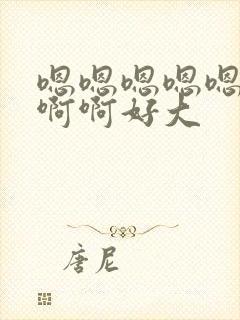 嗯嗯嗯嗯嗯
啊啊好大
唐尼